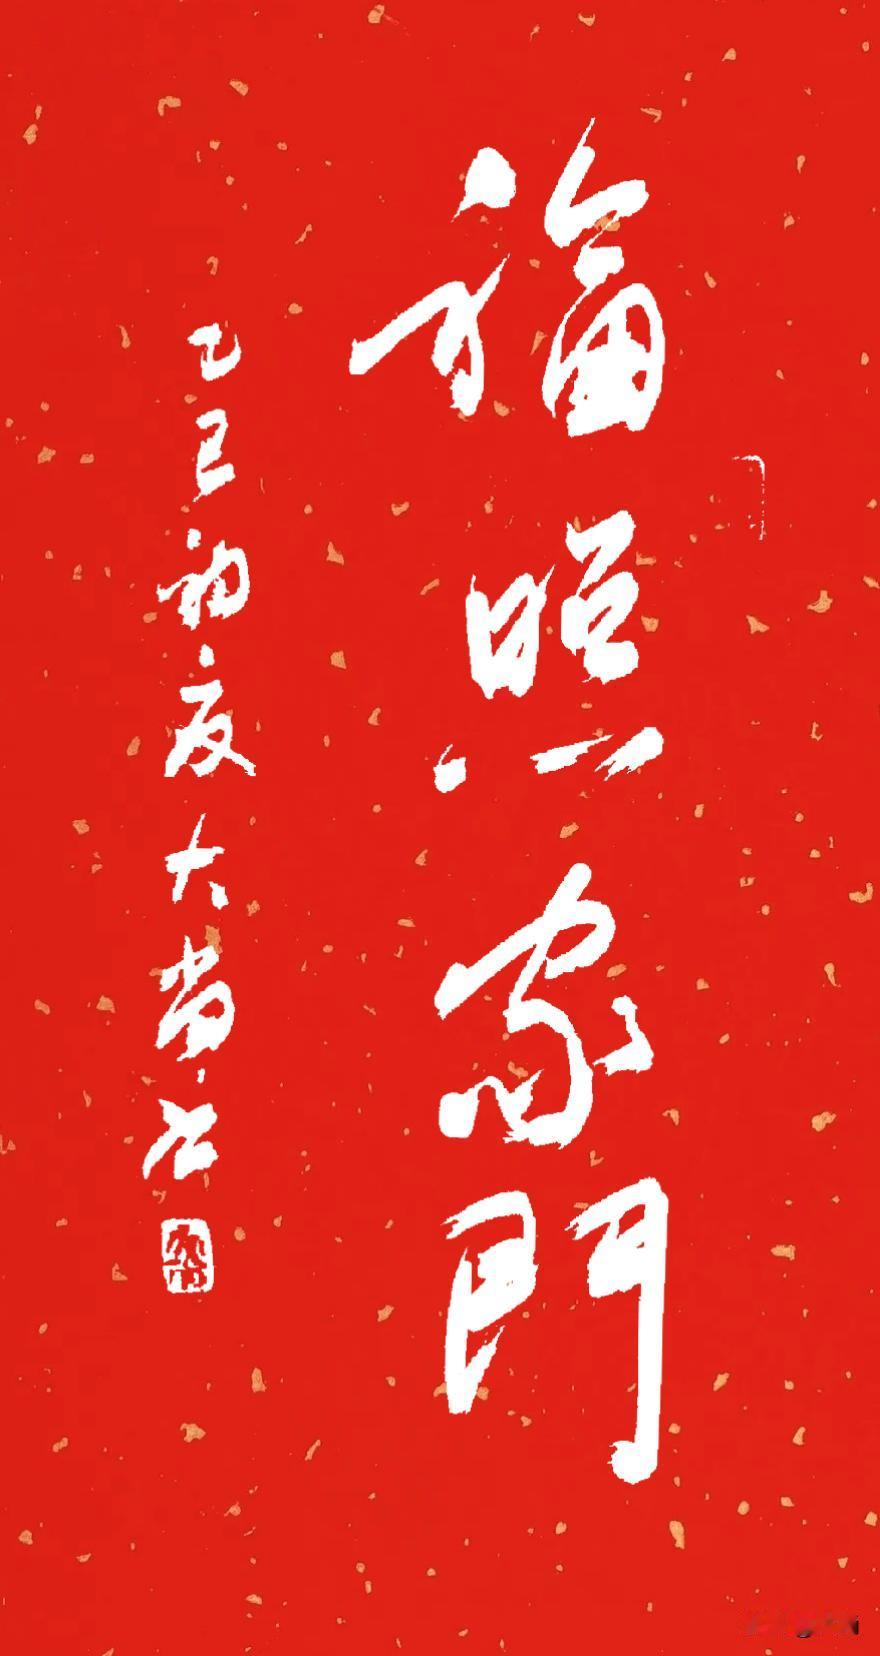 福照家門
乙巳初夏大尚书